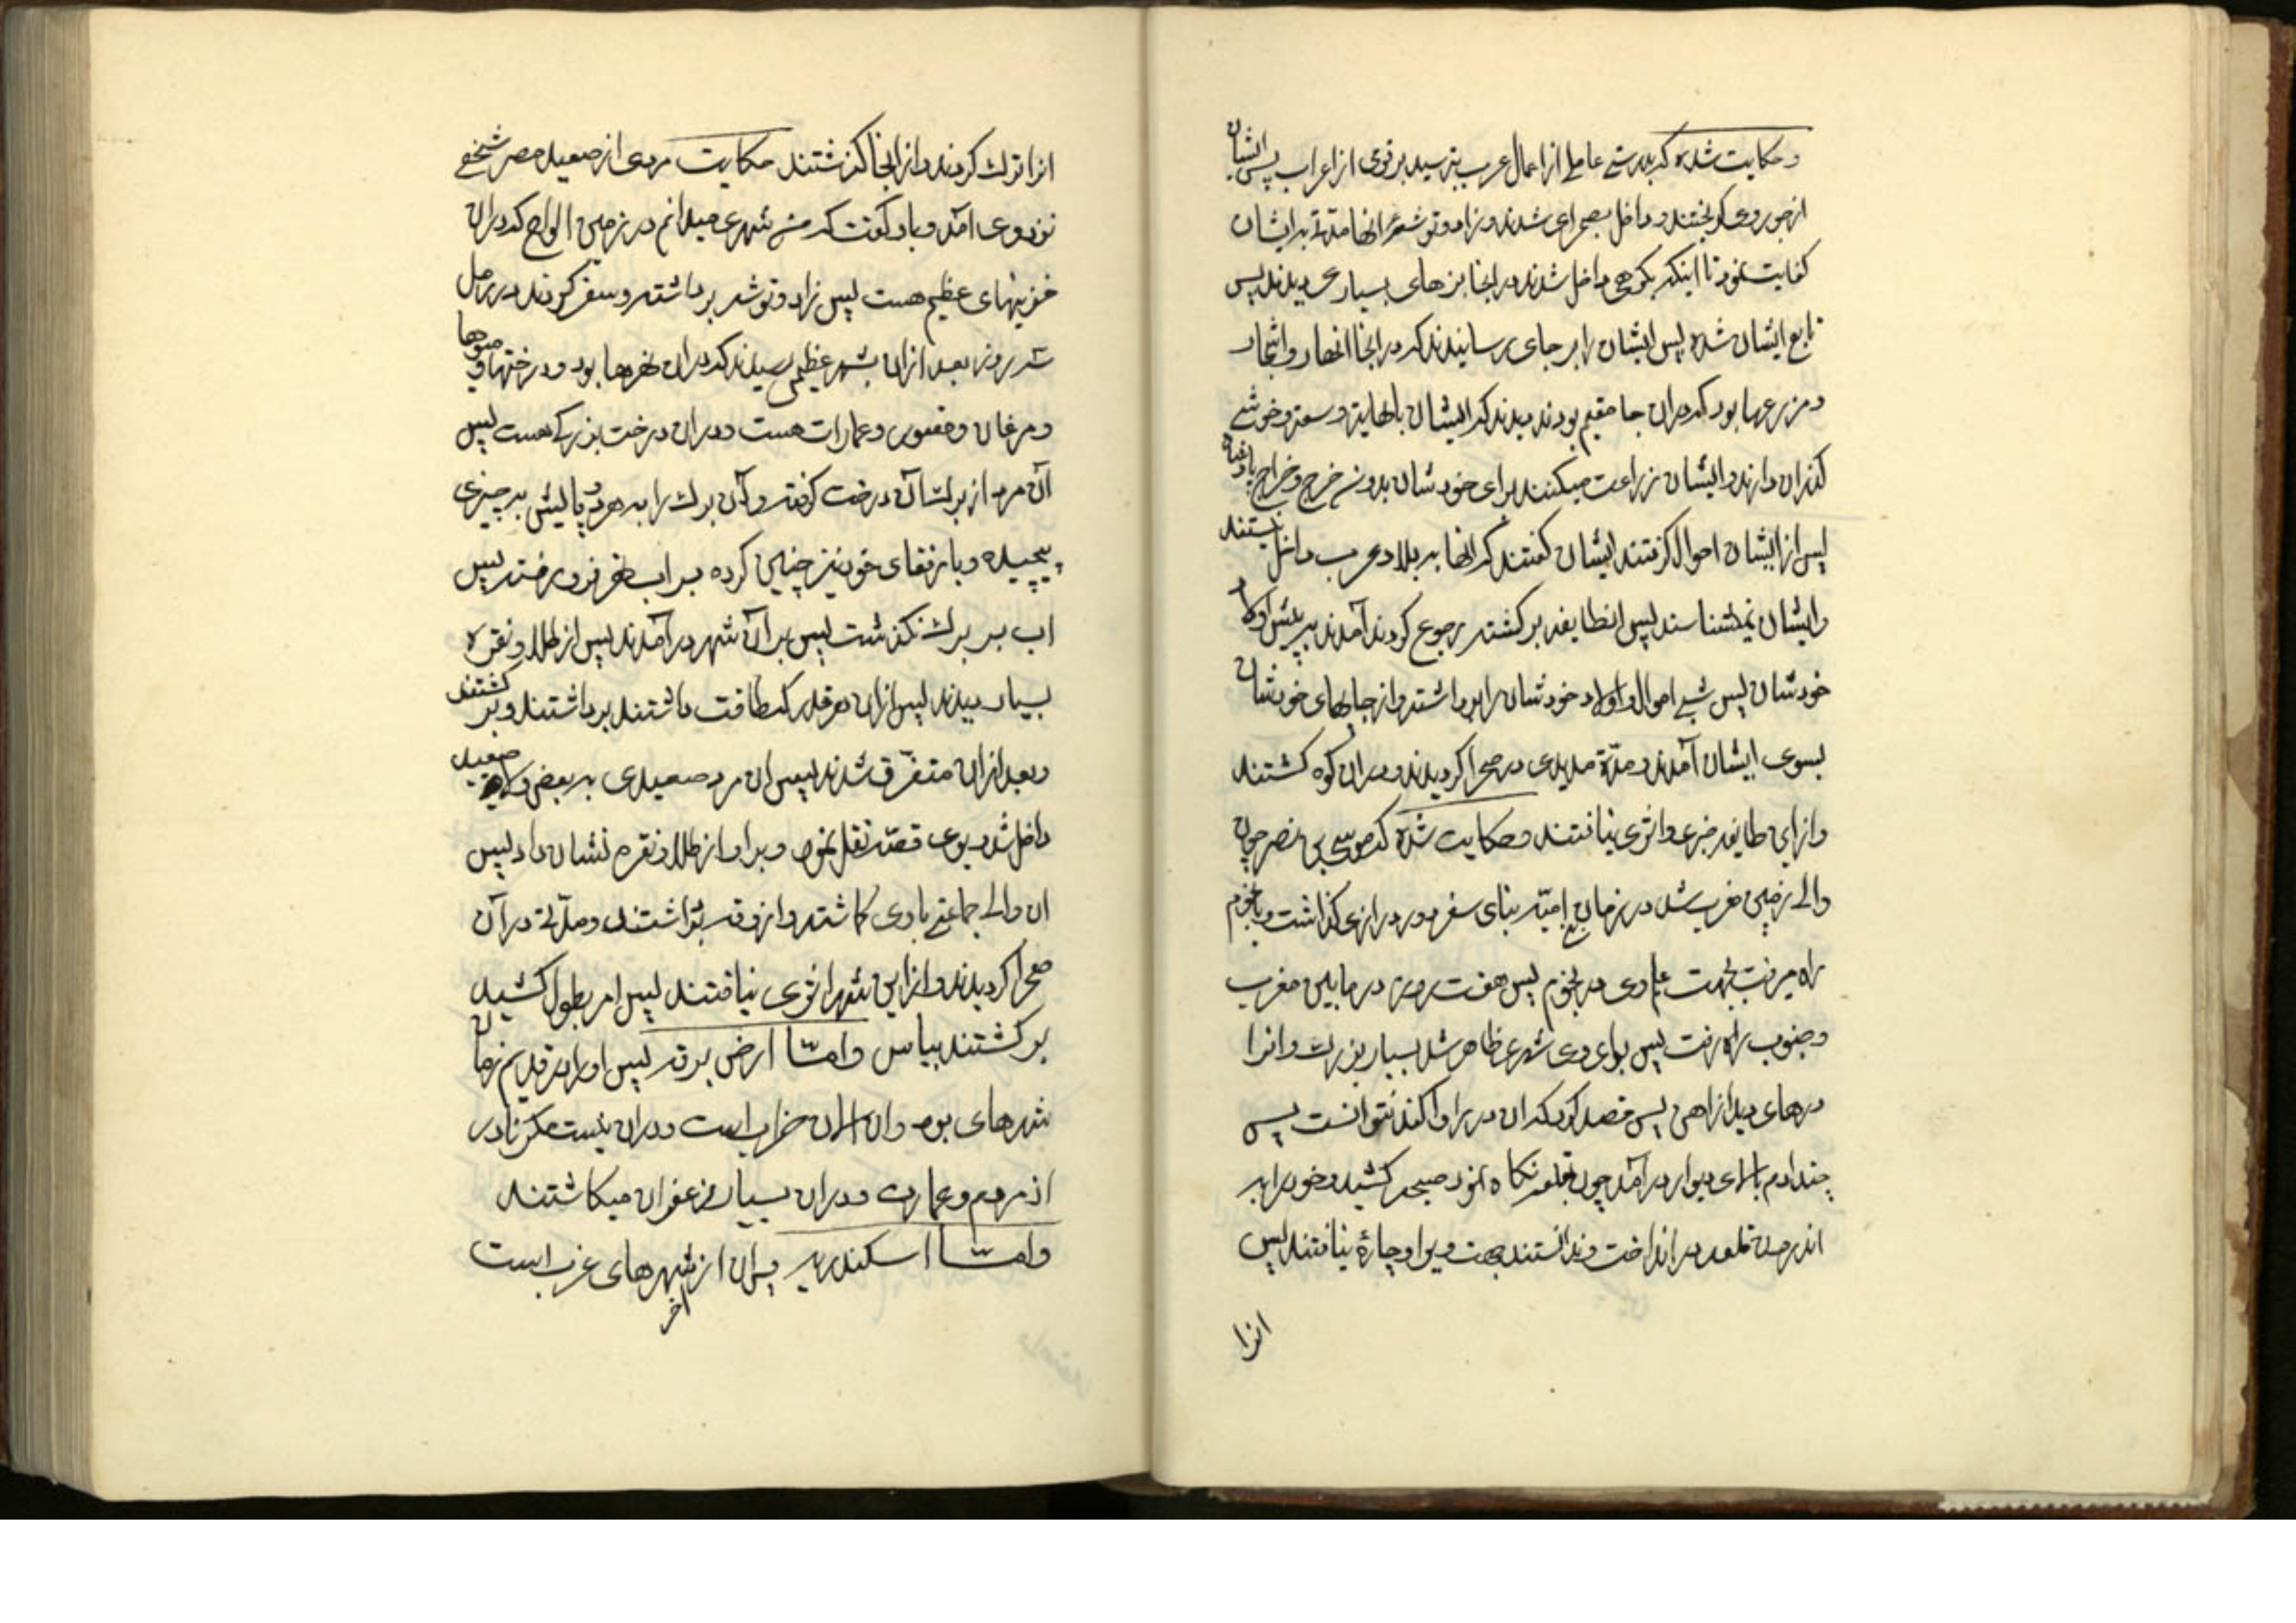 وحکایت شده که بدرستی عاملی از اعمال عرب بترسید بر قومی از اعراب پس ایشان
از جور وی کریختند و داخل بصحرای شدند و زاد و توشهٔ انها مدتی بر ایشان
کفایت نمود تا اینکه بکوهی داخل شدند در انجا بزهای بسیاری دیدند پس
تابع ایشان شده پس ایشان را بر جای رسانیدند که در انجا انهار و اشجار
و مزرعها بود که در ان جا مقیم بودند دیدند که ایشان با نهایت وسعت و خوشی
کذران دارند و ایشان زراعت میکنند برای خودشان بدون خرج و خراج پادشاه
پس از ایشان احوال کرفتند ایشان کفتند که انها به بلاد عرب داخل نیستند
و ایشان نمیشناسند پس انطایفه برکشته رجوع کردند آمدند به پیش اولاد
خودشان پس شبی اموال و اولاد خودشان را برداشته و از جایهای خودشان
بسوی ایشان آمدند و مدّة مدیدی در صحرا کردیدند و در ان کوه کشتند
و از این طایفه خبری و اثری نیافتند وحکایت شده که موسی بن نصر چون
والی زمین مغرب شد در زمان بنی امیّه بنای سفر دور درازی کذاشت و با نجوم
راه میرفت بجهت علم وی در نجوم پس هفت روز در مابین مغرب
و جنوب راه رفت پس برای وی شهری ظاهر شد بسیار بزرك و انرا
درهای دید از اهن پس قصد کرد که ان در را واکند نتوانست پس
چند ادم بالای دیوار درآمد چون بقلعه نکاه نمود صیحه کشید و خود را به
اندرون قلعه در انداخت و ندانستند جهت ویرا و چارهٔ نیافتند پس
انرا
انرا ترك کردند و از انجا کذشتند حکایت مردی از صعید مصر شخصی
نزد وی آمد و باو کفت که من شهری میدانم در زمین الواح که در ان
خزینهای عظیم هست پس زاد و توشه برداشته و سفر کردند در رمل
سه روز بعد از ان بشهر عظیمی رسیدند که در ان نهرها بود و درختها و میوها
و مرغان و قصور و عمارات هست و در ان درخت بزرکی هست پس
آن مرد از برك آن درخت کرفته و آن برك را به هر دو پایش به چیزی
پیچیده و با رفقای خود نیز چنین کرده به اب نهر فرو رفتند پس
اب بر برك نکذشت پس بر آن شهر درآمدند پس از طلا و نقره
بسیار دیدند پس از ان هر قدر که طاقت داشتند برداشتند و بر کشتند
و بعد از ان متفرّق شدند پس ان مرد صعیدی به بعض ولاة صعید
داخل شد و بوی قصّه نقل نمود و بر او از طلا و نقره نشان داد پس
ان والی جماعتی با وی کماشته و ازوقه برداشتند و مدّتی در آن
صحرا کردیدند و از این شهر اثری نیافتند پس امر بطول کشید
برکشتند بیاس وامّا ارض برقه پس او را در قدیم زمان
شهرهای بود و ان الان خراب است و در ان نیست مکر نادر
از مردم و عمارت و در ان بسیار زعفران میکاشتند
وامّا اسکندریه پس ان از شهرهای غرب است
اخر